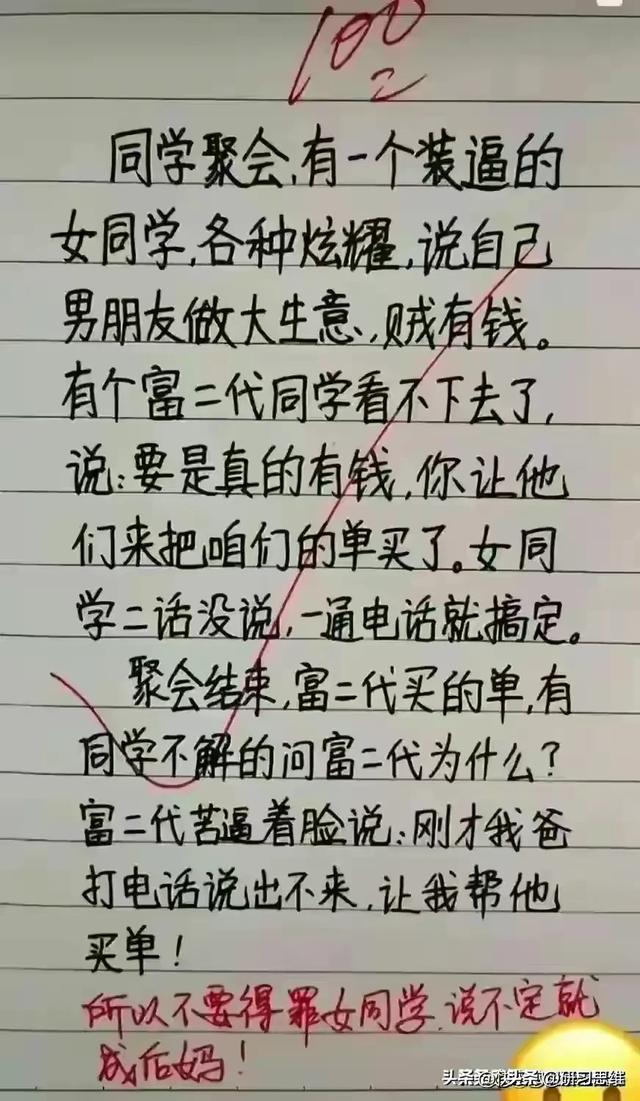 100
同学聚会,有一个装逼的
女同学,各种炫耀,说自己
男朋友做大生意,贼有钱。
有个富二代同学看不下去了,
说:要是真的有钱,你让他
们来把咱们的单买了。女同
学二话没说,一通电话就搞定。
聚会结束,富二代买的单,有
同学不解的问富二代为什么?
富二代苦逼着脸说:刚才我爸
打电话说出不来,让我帮他
买单!
所以不要得罪女同学,说不定就
成后妈!
@研习思维